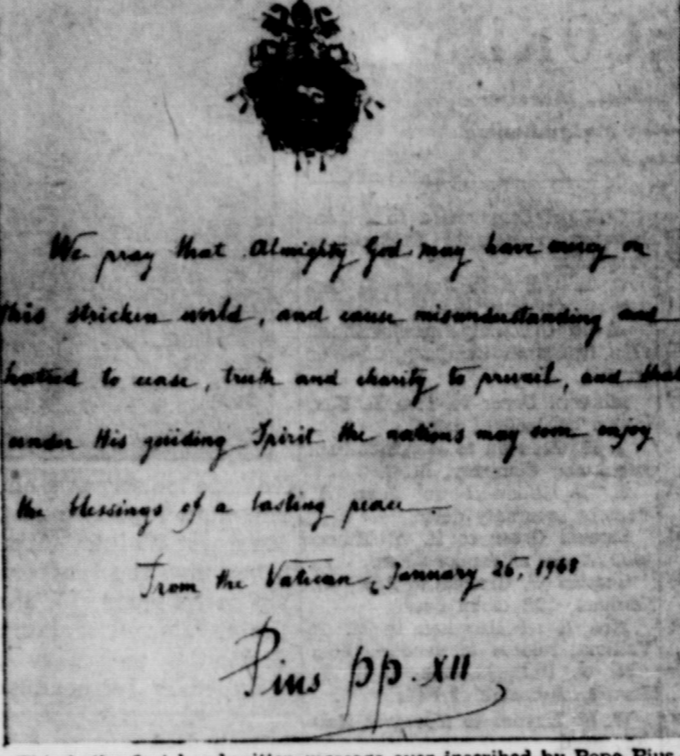 We pray that Almighty God may have mercy on
this stricken world, and cause misunderstanding and
hatred to cease, truth and charity to prevail, and that
under His guiding Spirit the nations may soon enjoy
the blessings of a lasting peace.
From the Vatican, January 26, 1948
Pius pp. XII